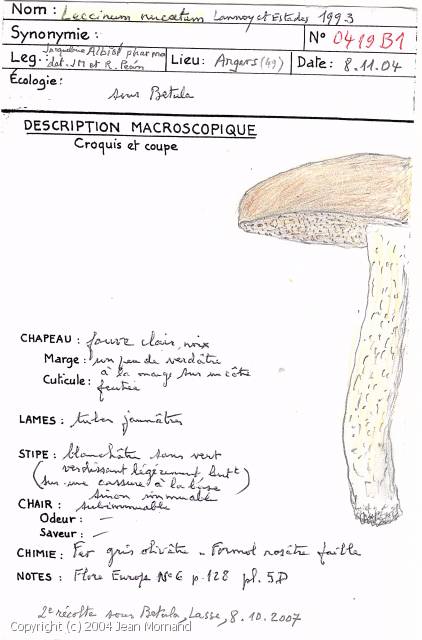 Nom : Leccinum nucatum Lannoy et Estades 1993
Synonymie : N° 0419B1
Jacqueline Albiot pharma
Leg. : dat. JM et R. Péan Lieu : Angers (49) Date : 8.11.04
Écologie :
sous Betula
DESCRIPTION MACROSCOPIQUE
Croquis et coupe
CHAPEAU : fauve clair, noix
Marge : un peu de verdâtre
à la marge sur un côté
Cuticule : feutrée
LAMES : tubes jaunâtres
STIPE : blanchâtre sans vert
(verdissant légèrement
sur une cassure à la base)
sinon immuable
CHAIR : subimmuable
Odeur : —
Saveur : —
CHIMIE : Fer gris olivâtre - Formol rosâtre faible
NOTES : Flore Europe N°6 p.128 pl. 5D
2e récolte sous Betula, Lasse, 8.10.2007
Copyright (c) 2004 Jean Mornand